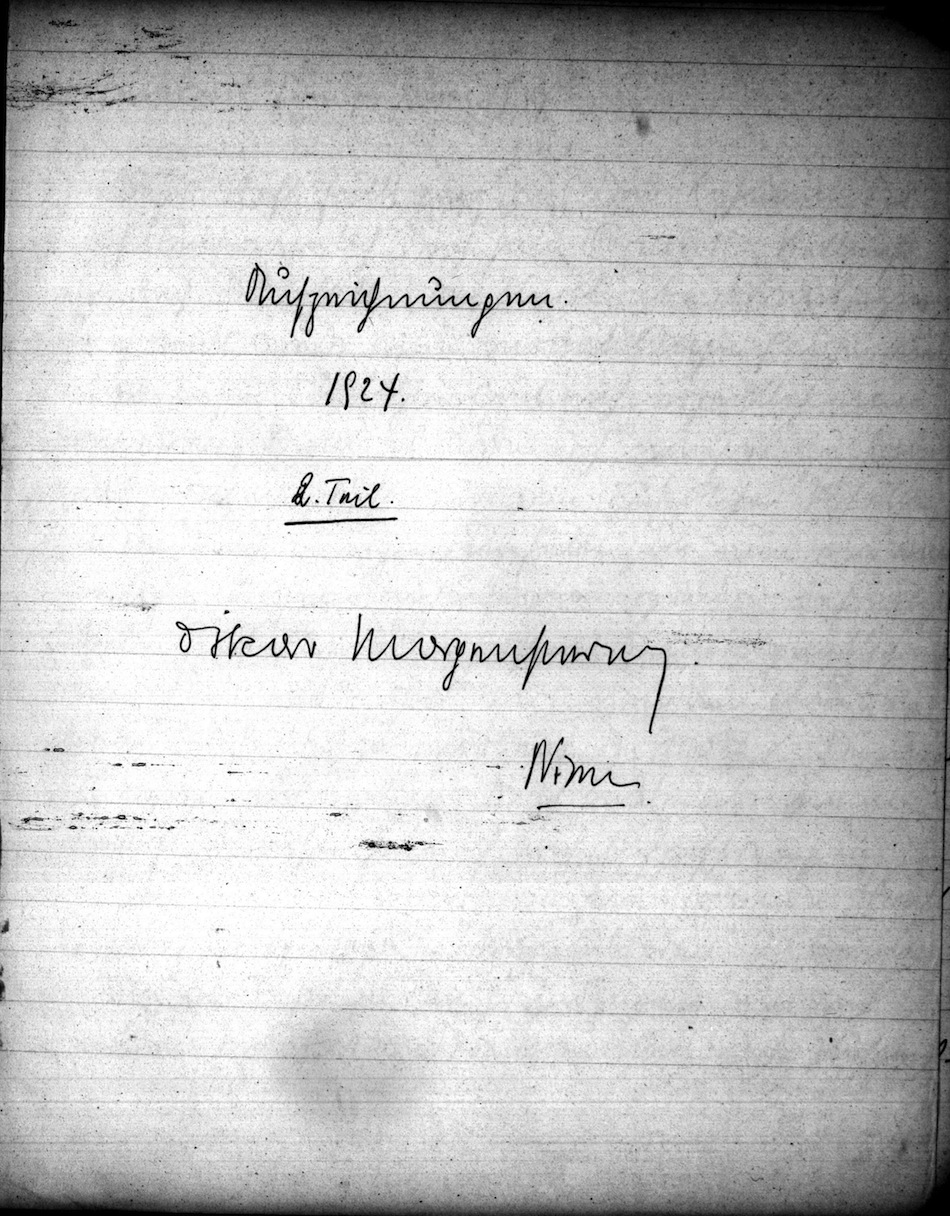 Aufzeichnungen.
1924.
2. Teil.
Oskar Morgenstern.
Wien.